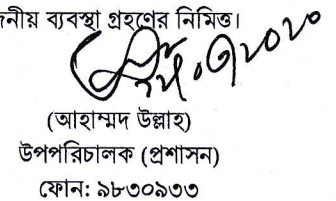 নীয় ব্যবস্থা গ্রহণের নিমিত্ত।
(আহাম্মদ উল্লাহ)
উপপরিচালক (প্রশাসন)
ফোন: ৯৮৩০৯৩৩